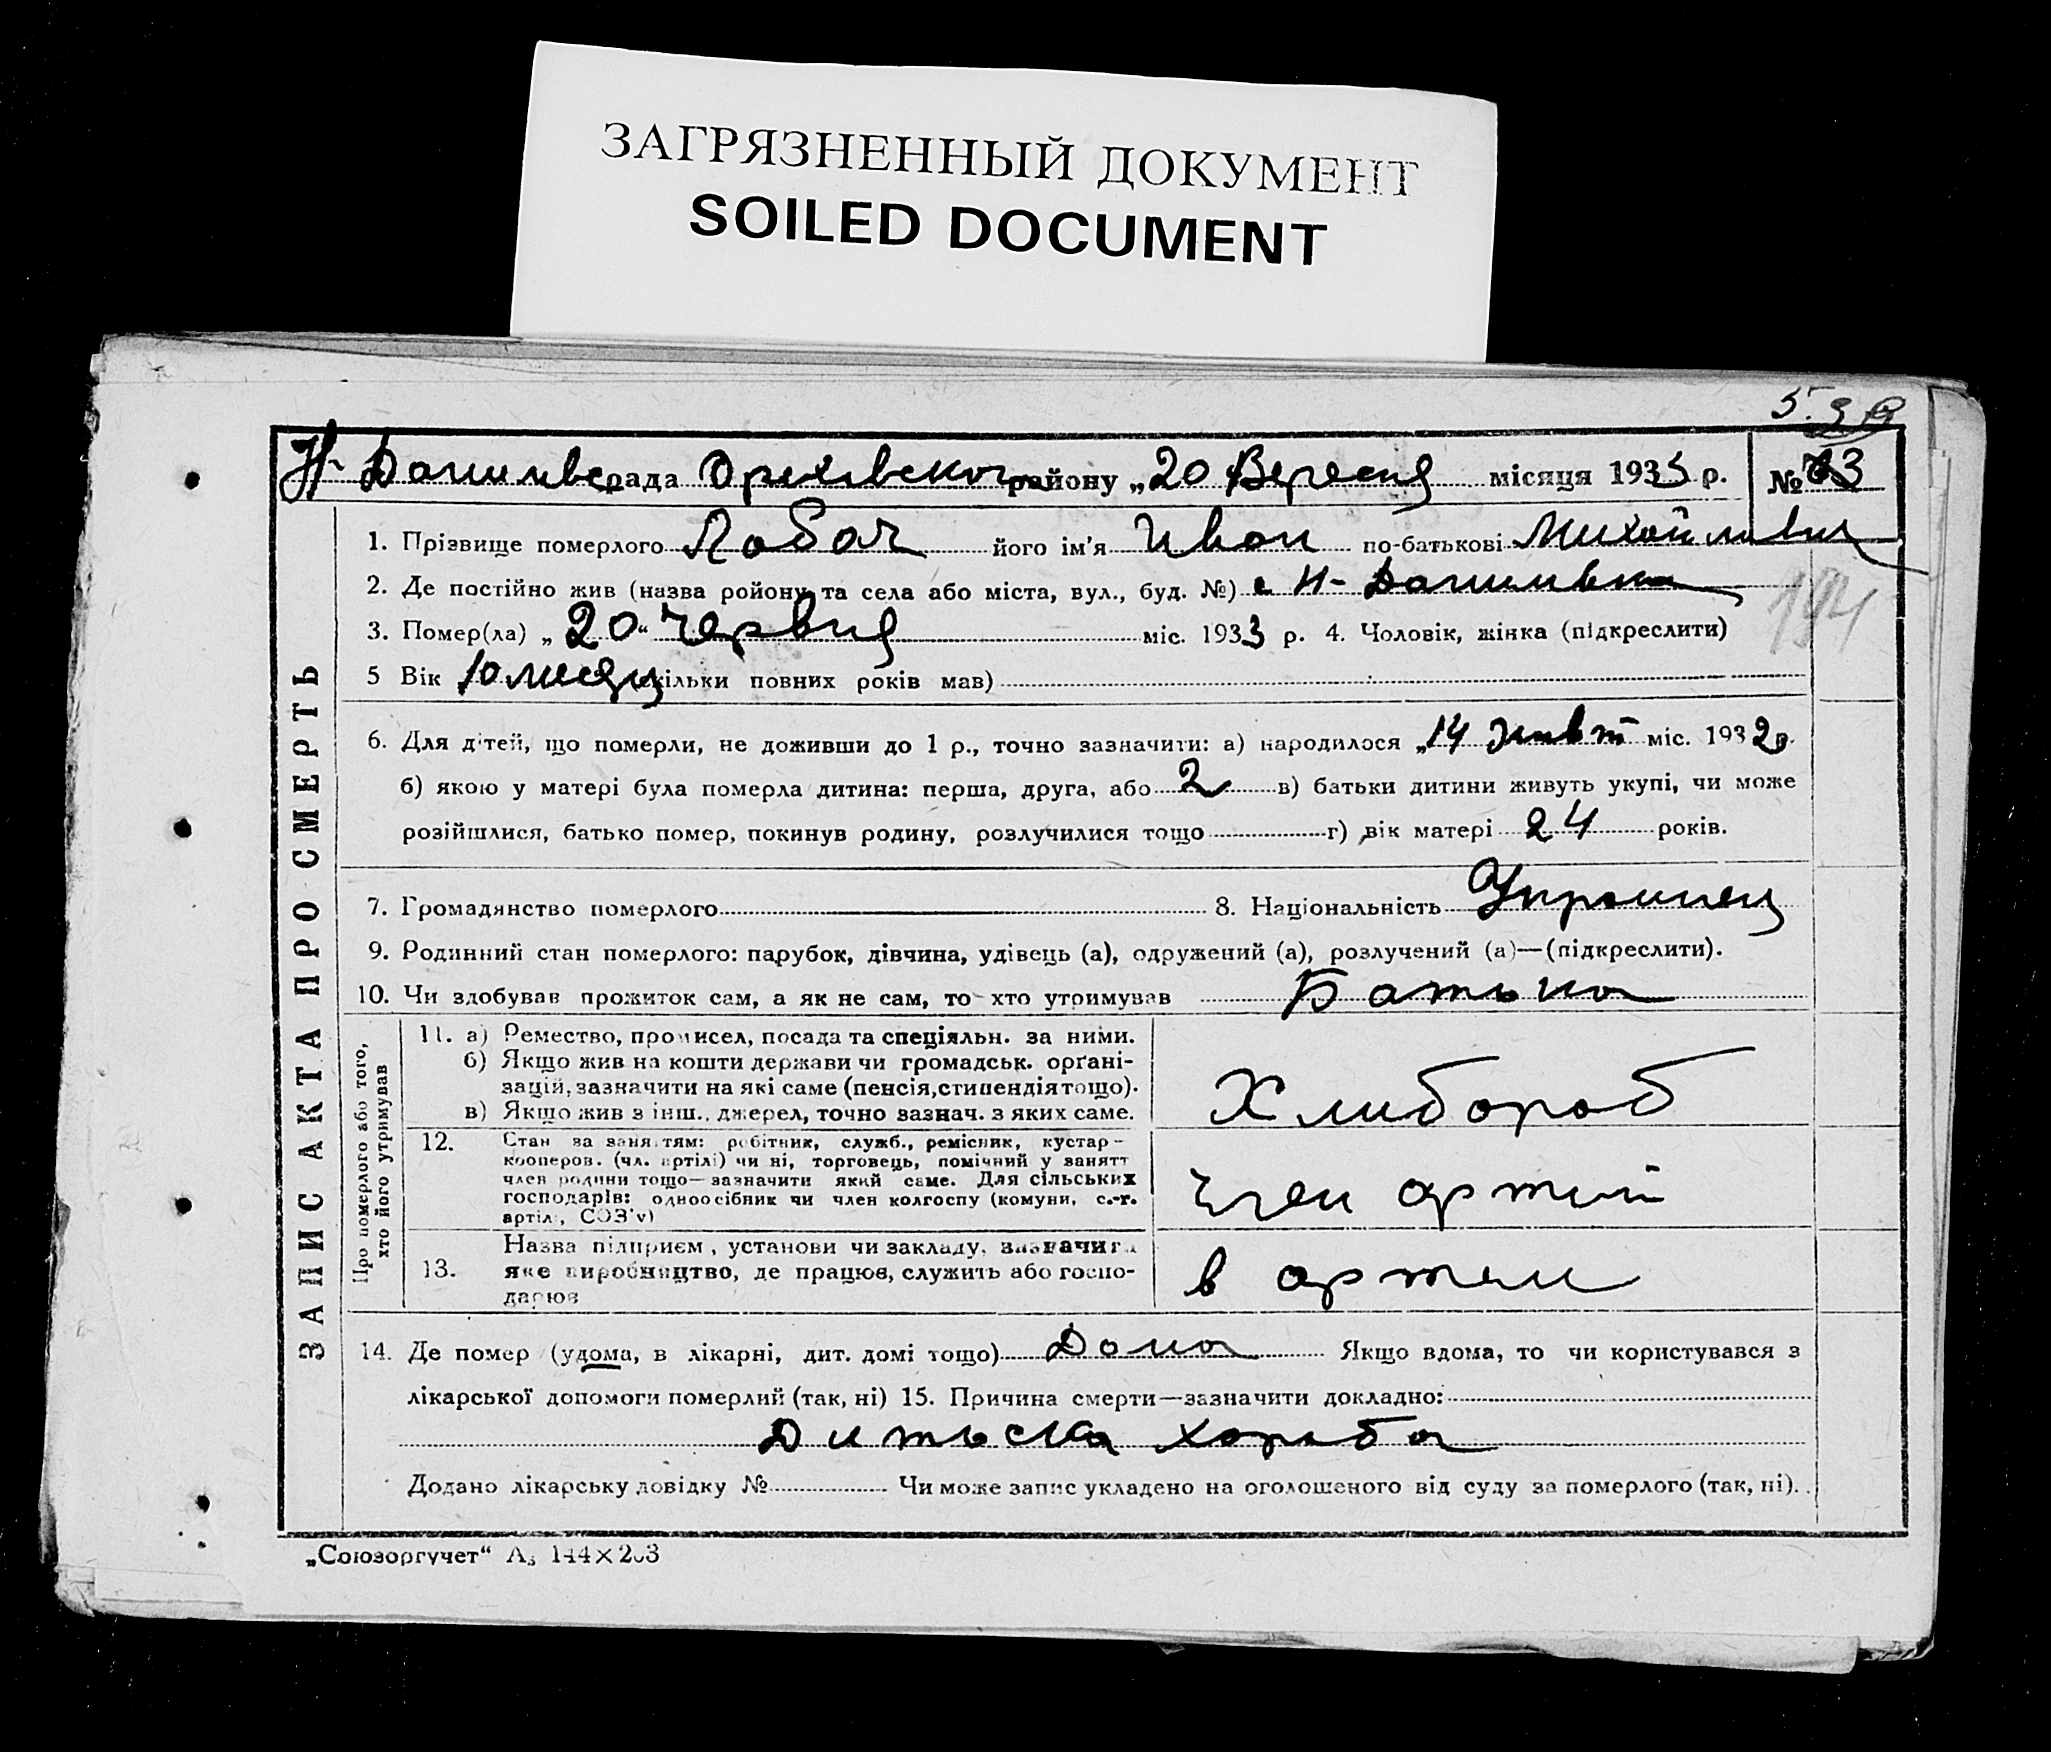 ЗАГРЯЗНЕННЫЙ ДОКУМЕНТ
SOILED DOCUMENT
Н-Данилівс рада Оріхівського району „20 Вересня місяця 1933 р. № 63
1. Прізвище померлого Лабач його ім'я Иван по-батькові Михайлович
194
2. Де постійно жив (назва району та села або міста, вул., буд. №) с Н-Данилівка
3. Помер(ла) „20" Червня міс. 1933 р. 4. Чоловік, жінка (підкреслити)
5 Вік 10 месяц (скільки повних років мав)
6. Для дітей, що померли, не доживши до 1 р., точно зазначити: а) народилося „14 жовт міс. 1932 р.
б) якою у матері була померла дитина: перша, друга, або 2 в) батьки дитини живуть укупі, чи може
розійшлися, батько помер, покинув родину, розлучилися тощо г) вік матері 24 років.
7. Громадянство померлого 8. Національність Украинец
9. Родинний стан померлого: парубок, дівчина, удівець (а), одружений (а), розлучений (а)—(підкреслити).
10. Чи здобував прожиток сам, а як не сам, то хто утримував Батько
ЗАПИС АКТА ПРО СМЕРТЬ
Про померлого або того, хто його утримував
11. а) Ремество, промисел, посада та спеціяльн. за ними.
б) Якщо жив на кошти держави чи громадськ. орґані-
зацій, зазначити на які саме (пенсія, стипендія тощо).
в) Якщо жив з інш. джерел, точно зазнач. з яких саме.
Хлибороб
12. Стан за заняттям: робітник, служб., ремісник, кустар-
кооперов. (чл. артілі) чи ні, торговець, помічний у занятт
член родини тощо—зазначити який саме. Для сільських
господарів: одноосібник чи член колгоспу (комуни, с.-г.
артілі, СОЗ'у)
член артілі
13. Назва підприєм., установи чи закладу, зазначити
яке виробництво, де працює, служить або госпо-
дарює
в артели
14. Де помер (удома, в лікарні, дит. домі тощо) Дома Якщо вдома, то чи користувався з
лікарської допомоги померлий (так, ні) 15. Причина смерти—зазначити докладно:
Дитьска хороба
Додано лікарську довідку № Чи може запис укладено на оголошеного від суду за померлого (так, ні).
„Союзоргучет“ А₅ 144×203